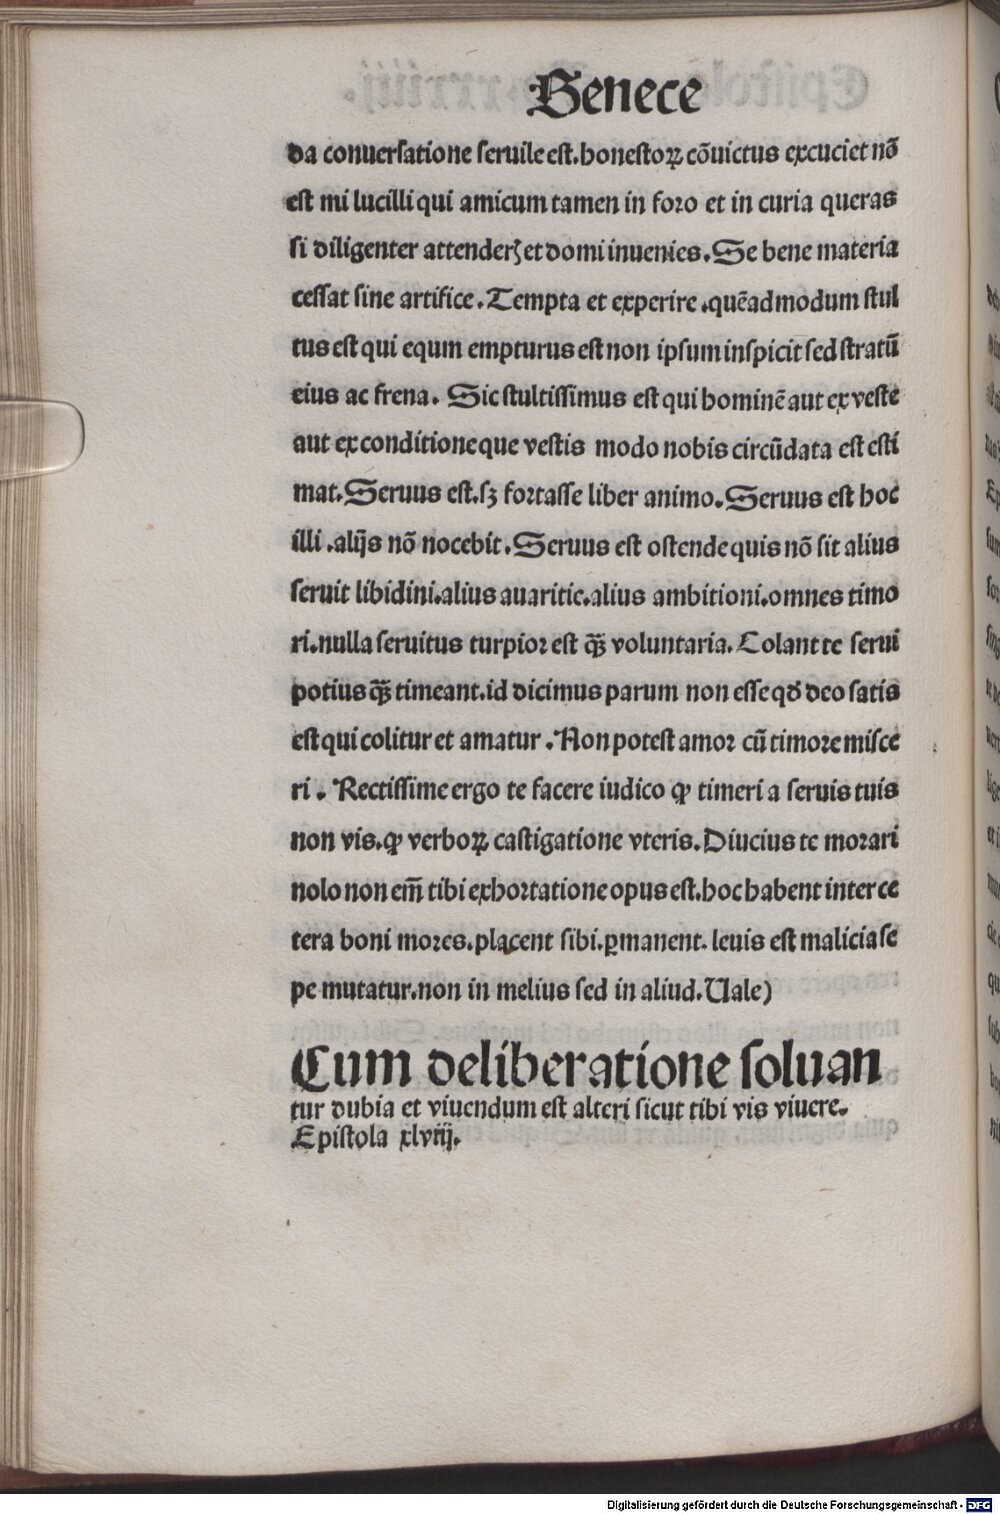 Senece
da conuersatione seruile est.honestoꝝ cōuictus excuciet nō
est mi lucilli qui amicum tamen in foro et in curia queras
si diligenter attenderꝫ et domi inuenies.Se bene materia
cessat sine artifice.Tempta et experire.quēadmodum stul
tus est qui equm empturus est non ipsum inspicit sed stratū
eius ac frena. Sic stultissimus est qui hominē aut ex veste
aut ex conditione que vestis modo nobis circūdata est esti
mat.Seruus est.sꝫ fortasse liber animo.Seruus est hoc
illi.alijs nō nocebit.Seruus est ostende quis nō sit alius
seruit libidini.alius auaritie.alius ambitioni.omnes timo
ri.nulla seruitus turpior est ꝙ̃ voluntaria.Colant te serui
potius ꝙ̃ timeant.id dicimus parum non esse qđ deo satis
est qui colitur et amatur.Non potest amor cū timore misce
ri. Rectissime ergo te facere iudico ꝙ timeri a seruis tuis
non vis.ꝙ verboꝝ castigatione vteris.Diucius te morari
nolo non em̄ tibi exhortatione opus est.hoc habent inter ce
tera boni mores.placent sibi.ꝑmanent.leuis est malicia se
pe mutatur.non in melius sed in aliud.Uale)
Cum deliberatione soluan
tur dubia et viuendum est alteri sicut tibi vis viuere.
Epistola xlviij.
Digitalisierung gefördert durch die Deutsche Forschungsgemeinschaft - DFG